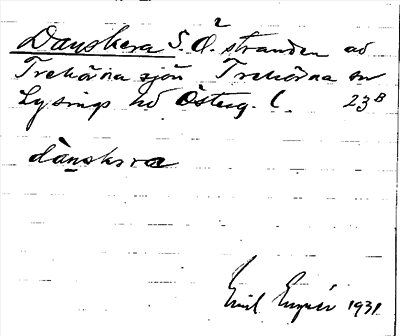 Danskera S.Ö. stranden av
Trehörna sjön Trehörna sn
Lysings hd Österg. l. 23B
dánskra
Emil 1931